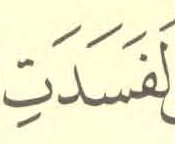 لَفَسَدَتِ